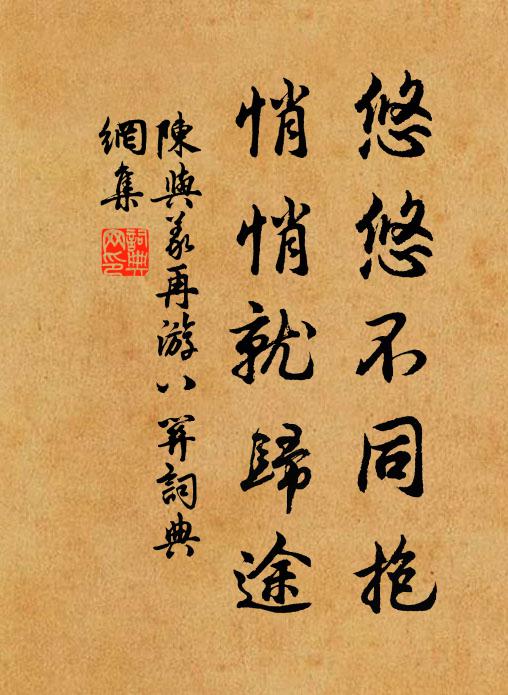 悠悠不同抱
悄悄就歸途
陳與義再游八關詞典
網集
詞典网印